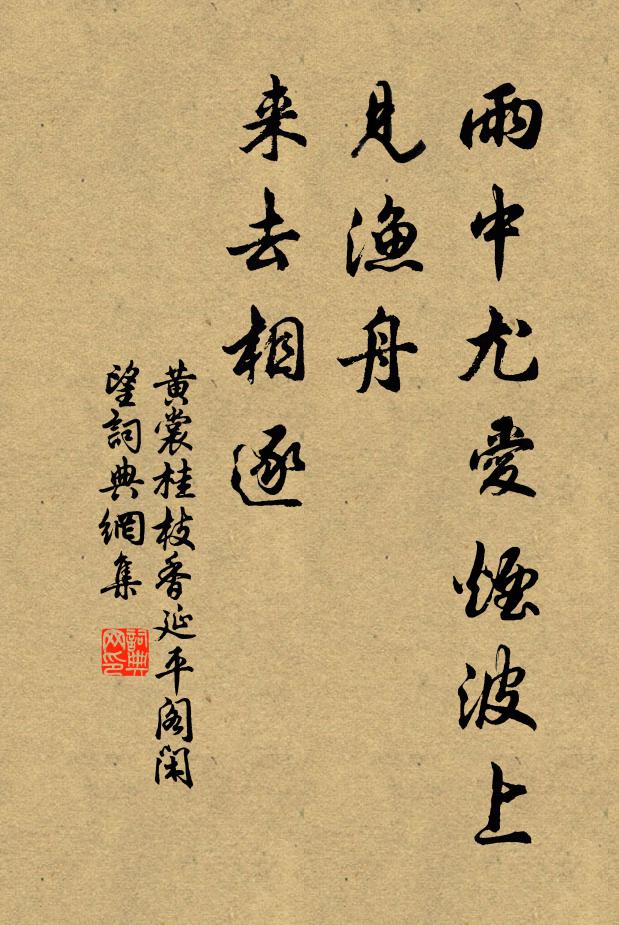 雨中尤愛煙波上
見漁舟
来去相逐
黄裳桂枝香延平阁闲
望詞典網集
詞典
网印